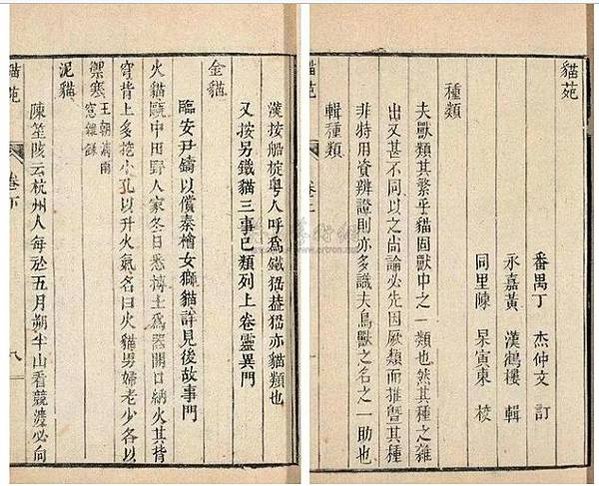 貓苑
番禺丁 杰仲文 訂
永嘉黃 漢鶴樓 輯
同里陳 杲寅東 校
種類
夫獸類其繁乎貓固獸中之一類也然其種之雜
出又甚不同以之尚論必先因厥類而推暨其種
非特用資辨證則亦多識夫鳥獸之名之一助也
輯種類
貓苑
卷上
漢按船椗粤人呼為鐵貓益貓亦貓類也
又按另鐵貓三事已類列上卷靈異門
金貓
臨安尹鑄以償秦檜女獅貓詳見後故事門
火貓甌中田野人家冬日悉摶土為器開口納火其背
穹背上多挖小孔以升火氣名曰火貓男婦老少各以
禦寒
王朝清雨
窓雜錄
泥貓
陳笙陔云杭州人每於五月朔半山看競渡必向
貓苑
卷下
八